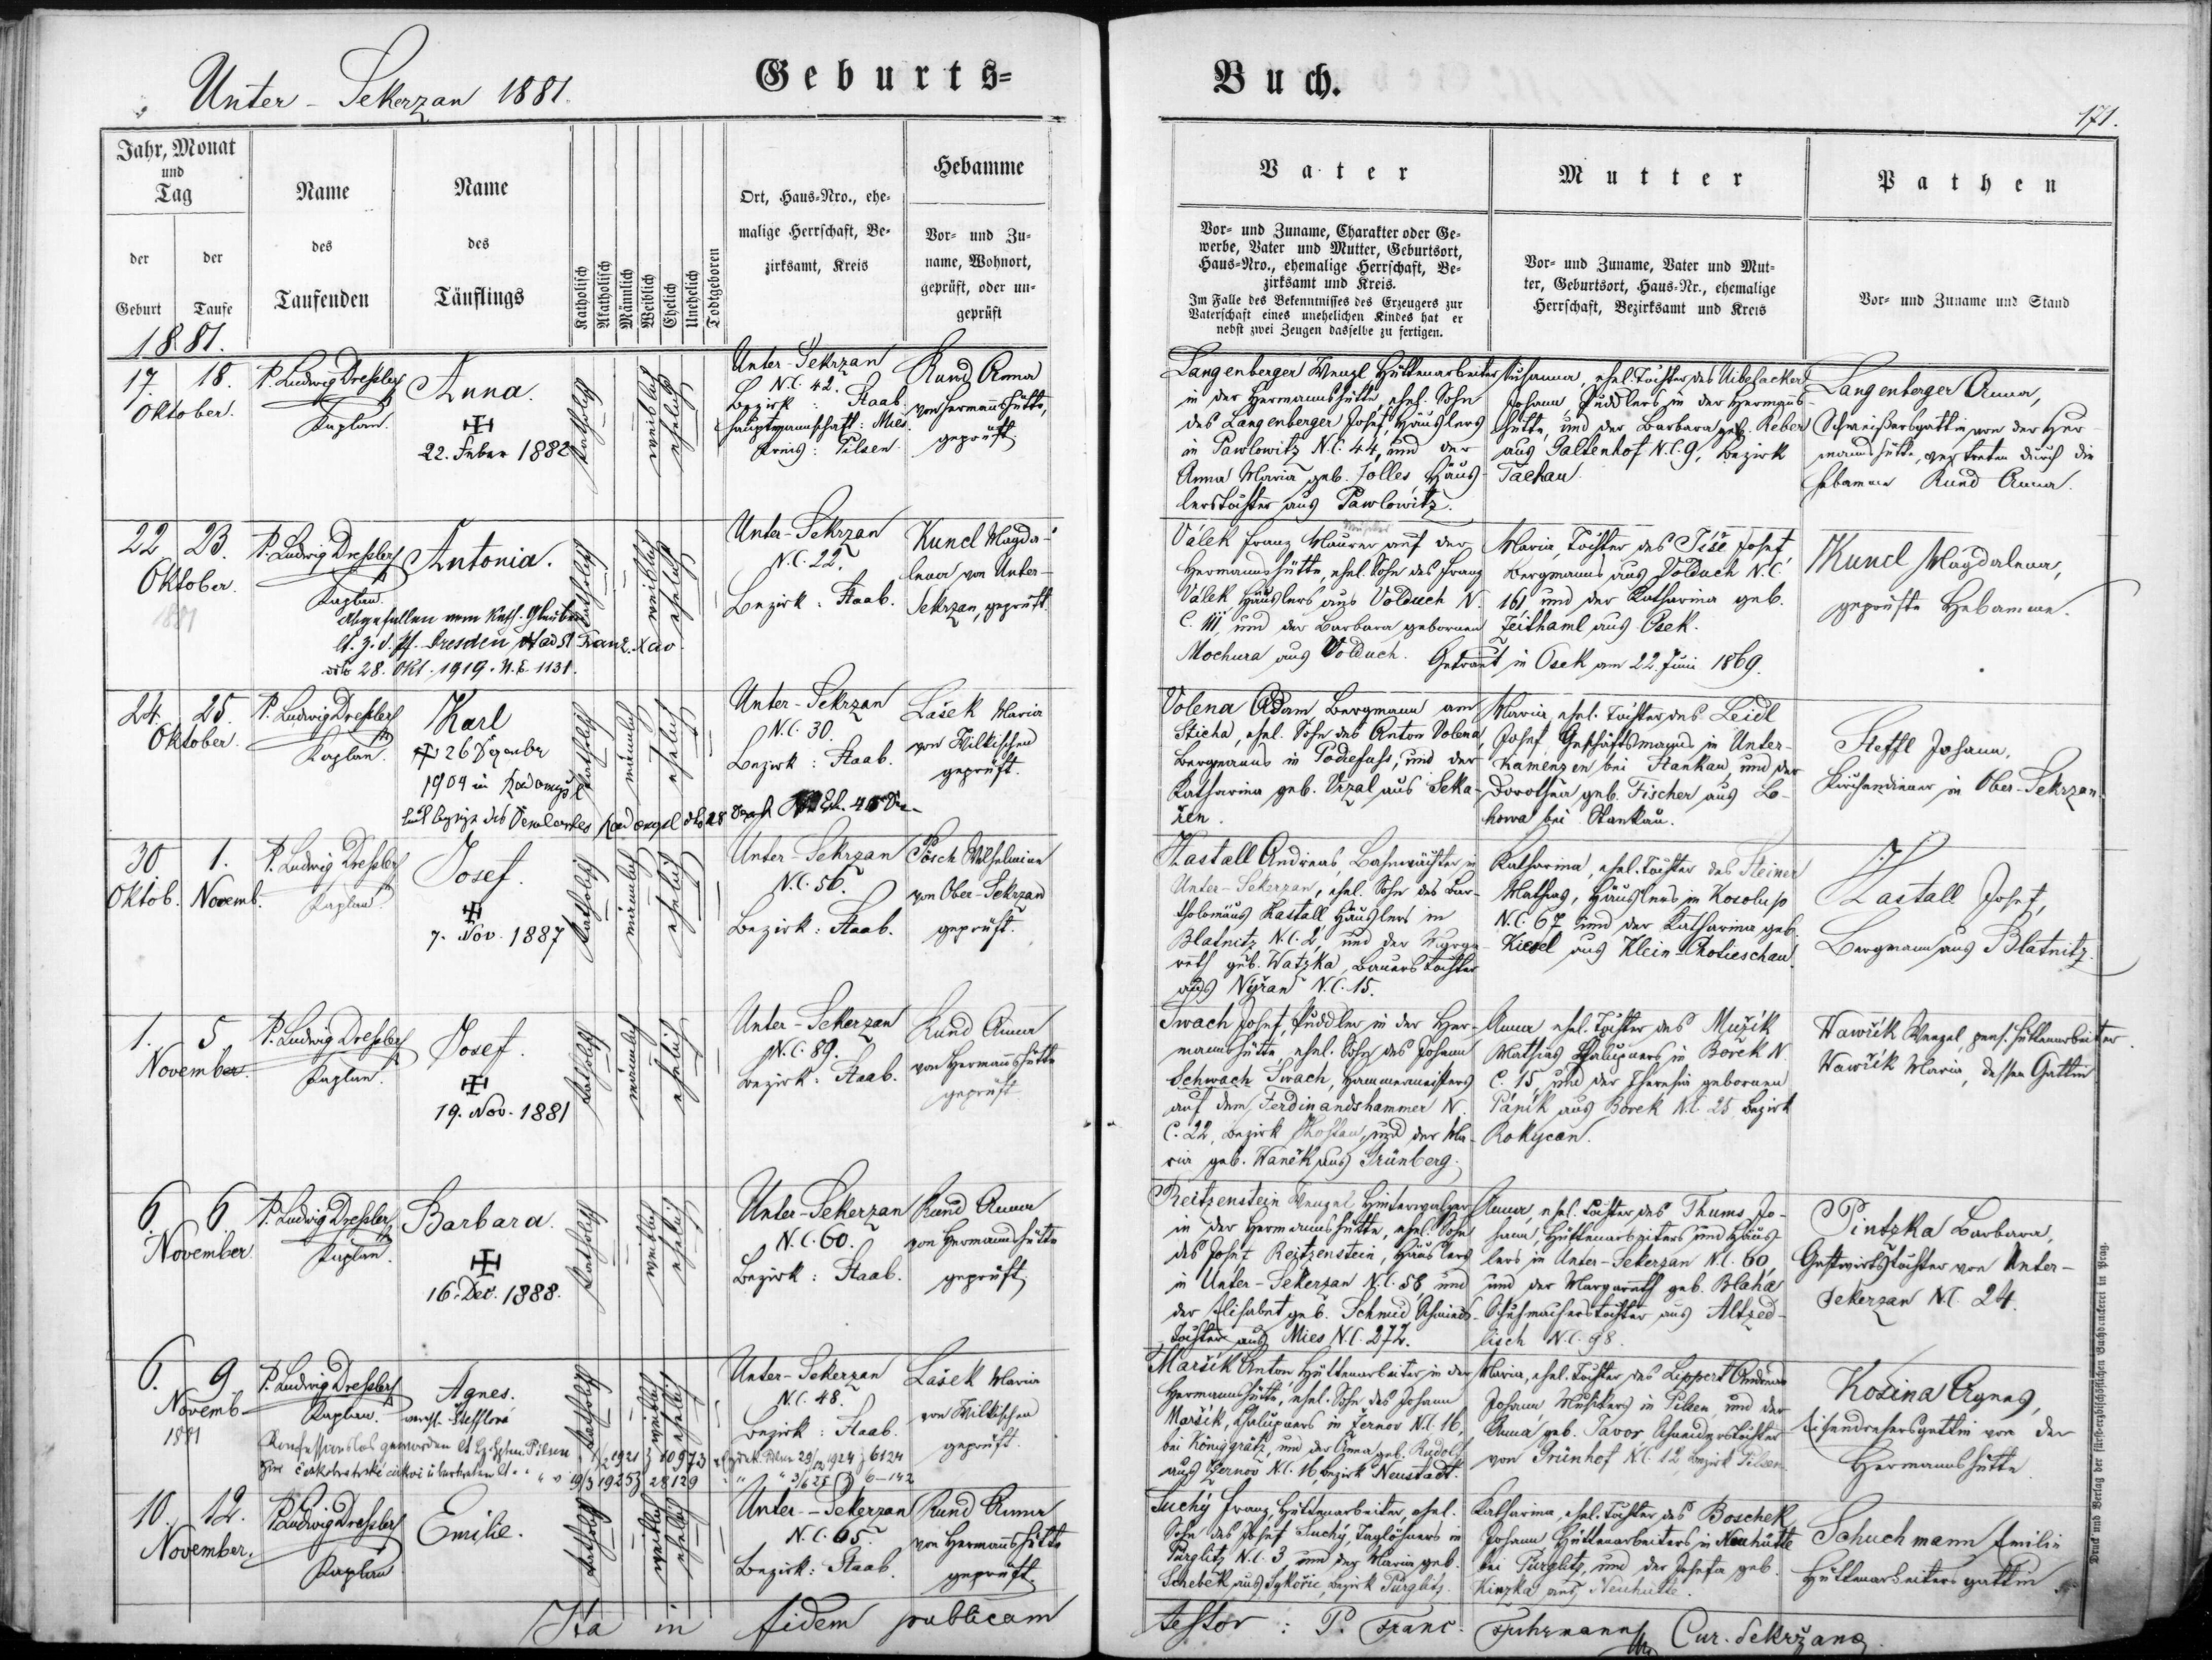 Unter-Sekerzan 1881.
Geburts-
Buch.
171.
Jahr, Monat
und
Tag
der
Geburt
der
Taufe
Name
des
Taufenden
Name
des
Täuflings
Katholisch
Akatholisch
Männlich
Weiblich
Ehelich
Unehelich
Todtgeboren
Ort, Haus-Nro., ehe-
malige Herrschaft, Be-
zirksamt, Kreis
Hebamme
Vor- und Zu-
name, Wohnort,
geprüft, oder un-
geprüft
Vater
Vor- und Zuname, Charakter oder Ge-
werbe, Vater und Mutter, Geburtsort,
Haus-Nro., ehemalige Herrschaft, Be-
zirksamt und Kreis.
Im Falle des Bekenntnisses des Erzeugers zur
Vaterschaft eines unehelichen Kindes hat er
nebst zwei Zeugen dasselbe zu fertigen.
Mutter
Vor- und Zuname, Vater und Mut-
ter, Geburtsort, Haus-Nr., ehemalige
Herrschaft, Bezirksamt und Kreis
Pathen
Vor- und Zuname und Stand
1881.
17. 18.
Oktober.
P. Ludwig Dressler
Kaplan.
Anna.
22. Feber 1882
katholisch
weiblich
ehelich
Unter-Sekrzan
N.C. 42.
Bezirk: Staab.
Hauptmannschaft: Mies.
Kreis: Pilsen.
Kund Anna
von Hermannshütte,
geprüft
Langenberger Wenzl Hüttenarbeiter
in der Hermannshütte, ehel. Sohn
des Langenberger Josef Häuslers
in Pawlowitz N.C. 44, und der
Anna Maria geb. Tolles, Häus-
lerstochter aus Pawlowitz.
Susanna, ehel. Tochter des Uibelacker
Johann Puddlers in der Hermanns-
hütte, und der Barbara geb. Reber
aus Galtenhof N.C. 9, Bezirk
Tachau.
Langenberger Anna,
Schweißersgattin von der Her-
mannshütte, vertreten durch die
Hebamme Kund Anna.
22 23.
Oktober.
1881
P. Ludwig Dressler
Kaplan.
Antonia.
Abgefallen vom kath. Glauben
Dresden
28. Okt. 1919. N.E. 1131.
katholisch
weiblich
ehelich
Unter-Sekrzan
N.C. 22.
Bezirk: Staab.
Kuncl Magda-
lena von Unter-
Sekrzan, geprüft.
Válek Franz Maurer auf der
Hermannshütte, ehel. Sohn des Franz
Válek Häuslers aus Volduch N.
C. 111, und der Barbara gebornen
Mochura aus Volduch. Getraut in Osek am 22. Juni 1869.
Maria, Tochter des Tiše Josef,
Bergmanns aus Volduch N.C.
161 und der Katharina geb.
Zeithaml aus Osek.
Kuncl Magdalena,
geprüfte Hebamme.
24. 25.
Oktober.
P. Ludwig Dressler
Kaplan.
Karl
26 Dezember
1904 in
katholisch
männlich
ehelich
Unter-Sekrzan
N.C. 30.
Bezirk: Staab.
Lašek Maria
von Wilkischen
geprüft.
Volena Adam Bergmann am
Sticha, ehel. Sohn des Anton Volena,
Bergmanns in Podčefuss, und der
Katharina geb. Vrzal aus Seka-
žen.
Maria, ehel. Tochter des Leidl
Josef, Geschäftsmanns in Unter-
Kamenzen bei Stankau, und der
Dorothea geb. Fischer aus Lo-
howa bei Stankau.
Steffl Johann,
Kirchendiener in Ober-Sekrzan.
30 1.
Oktob. Novemb.
P. Ludwig Dressler
Kaplan.
Josef.
7. Nov. 1887
katholisch
männlich
ehelich
Unter-Sekrzan
N.C. 56.
Bezirk: Staab.
Pösch Wilhelmine
von Ober-Sekrzan
geprüft.
Hastall Andreas, Bahnwächter in
Unter-Sekerzan, ehel. Sohn des Bar-
tholomäus Hastall Häuslers in
Blatnitz N.C. 2, und der Marga-
reth geb. Watzka, Bauerstochter
aus Nýřan N.C. 15.
Katharina, ehel. Tochter des Steiner
Mathias, Häuslers in Kosolup
N.C. 67 und der Katharina geb.
Kiesel aus Klein-Chotieschau.
Hastall Josef,
Bergmann aus Blatnitz.
1. 5
November.
P. Ludwig Dressler
Kaplan.
Josef.
19. Nov. 1881
katholisch
männlich
ehelich
Unter-Sekerzan
N.C. 89.
Bezirk: Staab.
Kund Anna
von Hermannshütte
geprüft.
Swach Josef, Puddler in der Her-
mannshütte, ehel. Sohn des Johann
Schwach Swach, Hammermeisters
auf dem Ferdinandshammer N.
C. 22, Bezirk und der Ma-
ria geb. Waněk aus Grünberg.
Anna ehel. Tochter des Mužík
Mathias Chalupners in Borek N.
C. 15, und der Theresia gebornen
Pánik aus Borek N.C. 25 Bezirk
Rokycan.
Wawřík Wenzel, pens. Hüttenarbeiter.
Wawřík Maria, dessen Gattin
6. 6.
November
P. Ludwig Dressler
Kaplan.
Barbara.
16. Dec. 1888.
katholisch
weiblich
ehelich
Unter-Sekerzan
N.C. 60.
Bezirk: Staab.
Kund Anna
von Hermannshütte
geprüft,
Reitzenstein Wenzel Hinterwalzer
in der Hermannshütte, ehel. Sohn
des Josef Reitzenstein, Häuslers
in Unter-Sekerzan N.C. 58, und
der Elisabet geb. Schmid, Schmieds-
tochter aus Mies N.C. 272.
Anna, ehel. Tochter des Thums Jo-
hann, Hüttenarbeiters und Häus-
lers in Unter-Sekerzan N.C. 60,
und der Margareth geb. Blaha
Schuhmacherstochter aus Altzed-
lisch N.C. 98.
Pintzka Barbara,
Gastwirthstochter von Unter-
Sekerzan N.C. 24.
6. 9
Novemb.
1881
P. Ludwig Dressler
Kaplan.
Agnes.
Stefflová
Konfessionslos geworden
Pilsen 1921 10973
1925 28129
katholisch
weiblich
ehelich
Unter-Sekerzan
N.C. 48.
Bezirk: Staab.
Lašek Maria
von Wilkischen
geprüft.
Maršík Anton Hüttenarbeiter in der
Hermannshütte, ehel. Sohn des Johann
Maršík, Chalupners in Žernov N.C. 16,
bei Königgrätz, und der Anna geb. Rudolf
aus Žernov N.C. 16, Bezirk Neustadt.
Maria, ehel. Tochter des Lippert
Johann Musikers in Pilsen, und der
Anna geb. Tavor, Schneiderstochter
von Grünhof N.C. 12 Bezirk Pilsen.
Kožina Agnes,
Eisendrehersgattin von der
Hermannshütte
10. 12.
November.
P. Ludwig Dressler
Kaplan
Emilie.
katholisch
weiblich
ehelich
Unter-Sekerzan
N.C. 65.
Bezirk: Staab.
Kund Anna
von Hermannshütte
geprüft
Suchý Franz, Hüttenarbeiter, ehel.
Sohn des Josef Suchý, Taglöhners in
Pürglitz N.C. 3 und der Maria geb.
Schebek aus Sykořic, Bezirk Pürglitz.
Katharina, ehel. Tochter des Boschek
Johann Hüttenarbeiters in Neuhütte
bei Pürglitz, und der Josefa geb.
Kinzka aus Neuhütte.
Schuchmann Emilie
Hüttenarbeitersgattin
Ita in fidem publicam
testor: P. Franc. Fuhrmann Cur. Sekržang
Druck und Verlag der fürst-erzbischöflichen Buchdruckerei in Prag.